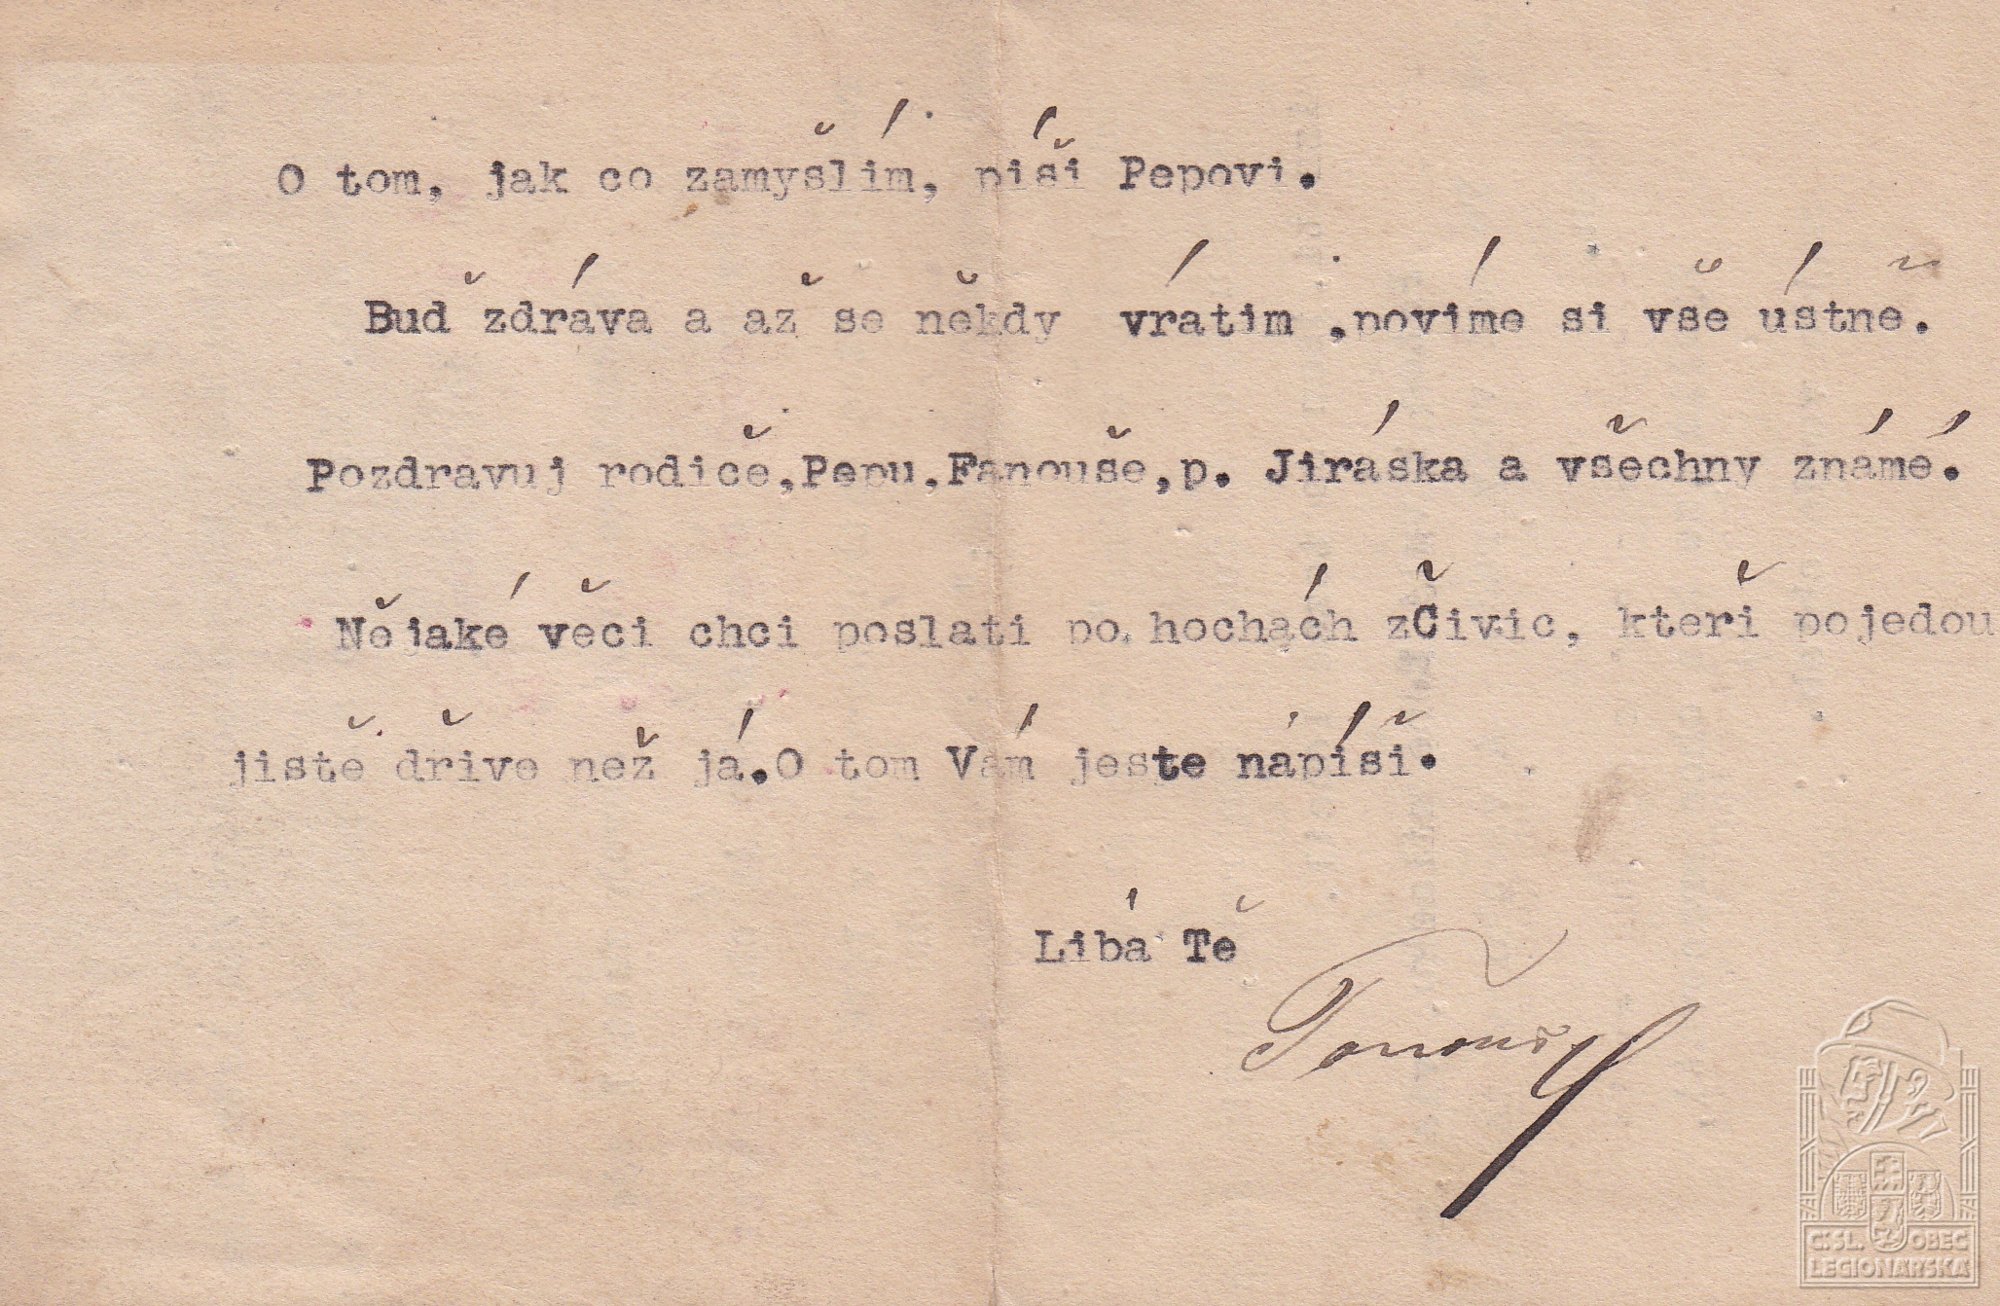 O tom, jak co zamýšlím, píši Pepovi.
Buď zdráva a až se někdy vrátim ,povíme si vše ústně.
Pozdravuj rodiče,Pepu,Fanouše,p. Jiráska a všechny známé.
Nějaké věci chci poslati po hochách zČivic, kteří pojedou
jistě dřive než já.O tom Vám jeste napíši.
Líbá Tě
Tonouš
Č:SL. OBEC
LEGIONÁŘSKÁ